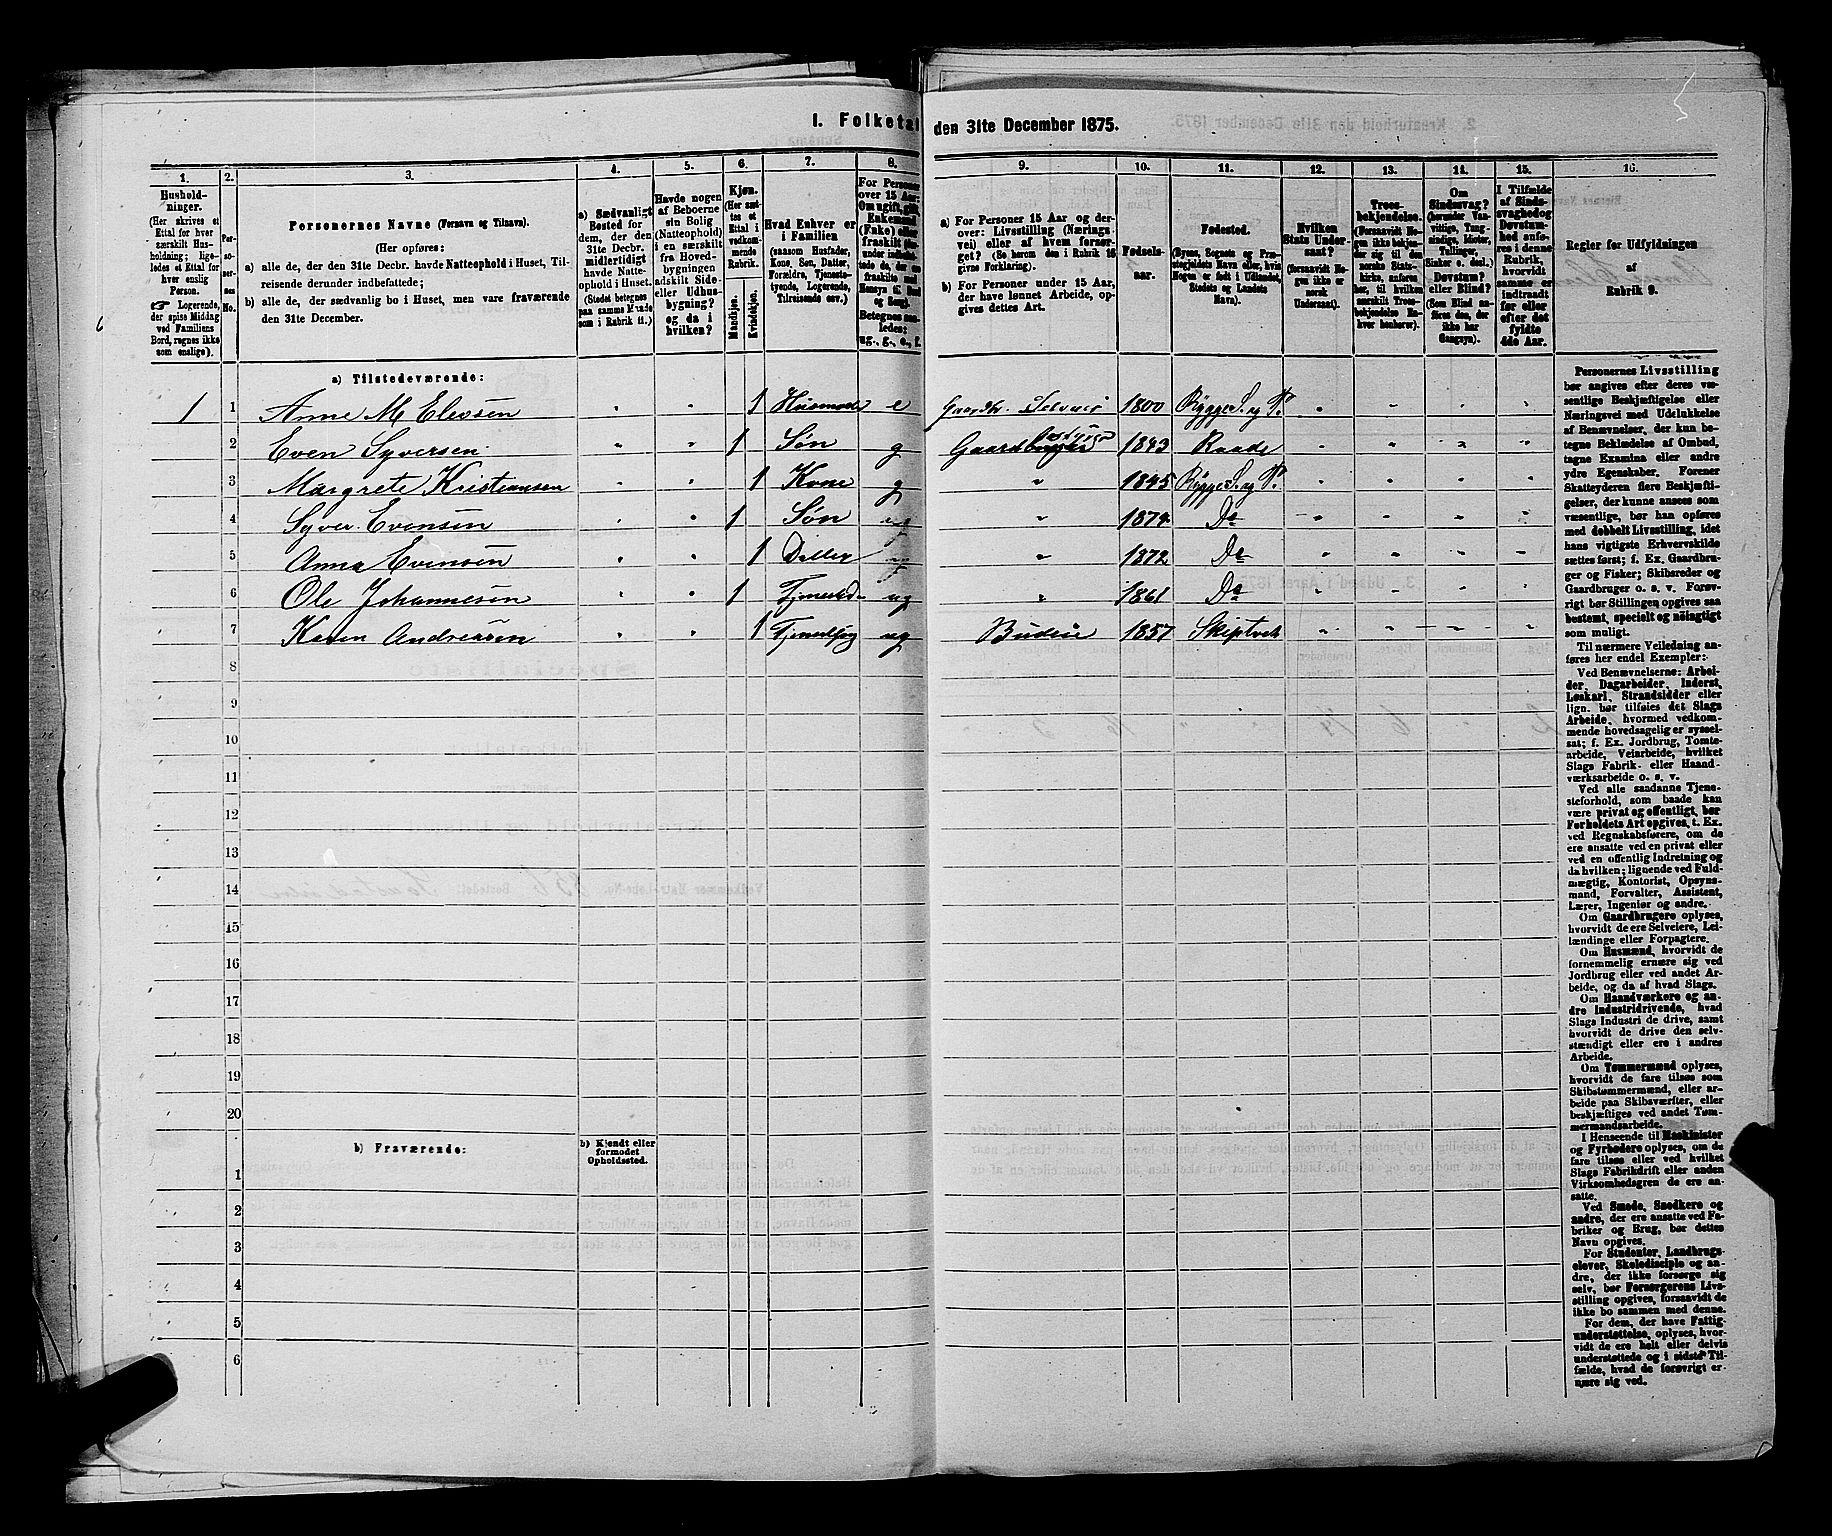 I. Folketal
den 31te December 1875.
1.
Hushold-
ninger.
(Her skrives et
Ettal for hver
særskilt Hus-
holdning; lige-
ledes et Ettal for
hver enslig
Person.
☞ Logerende,
der spise Middag
ved Familiens
Bord, regnes ikke
som enslige).
2.
Per-
so-
ner-
nes
No.
3.
Personernes Navne (Fornavn og Tilnavn).
(Her opføres:
a) alle de, der den 31te Decbr. havde Natteophold i Huset, Til-
reisende derunder indbefattede;
b) alle de, der sædvanlig bo i Huset, men vare fraværende
den 31te December.
4.
a) Sædvanligt
Bosted for
dem, der den
31te Decbr.
midlertidigt
havde Natte-
ophold i Huset.
(Stedet betegnes
paa samme Maade
som i Rubrik 11.)
5.
Havde nogen
af Beboerne
sin Bolig
(Natteophold)
i en særskilt
fra Hoved-
bygningen
adskilt Side-
eller Udhus-
bygning?
og da i
hvilken?
6.
Kjøn.
(Her sæt-
tes et
Ettal i
vedkom-
mende
Rubrik.
Mandkjøn.
Kvindekjøn.
7.
Hvad Enhver er
i Familien
(saasom Husfader,
Kone, Søn, Datter,
Forældre, Tjeneste-
tyende, Logerende,
Tilreisende osv.)
8.
For Personer
over 15 Aar:
Om ugift, gift,
Enkemand
(Enke) eller
fraskilt
Betegnes saa-
ledes:
ug., g., e., f.
9.
a) For Personer 15 Aar og der-
over: Livsstilling (Nærings-
vei) eller af hvem forsør-
get? (Se herom den i Rubrik 16
givne Forklaring).
b) For Personer under 15 Aar,
der have lønnet Arbeide, op-
gives dettes Art.
10.
Fødsels-
aar.
11.
Fødested.
(Byens, Sognets og Præ-
stegjeldets Navn eller, hvis
Nogen er født i Udlandet,
Stedets og Landets
Navn).
12.
Hvilken
Stats Under-
saat?
(forsaavidt No-
gen ikke er
norsk
Undersaat).
13.
Troes-
bekjendelse.
(Forsaavidt No-
gen ikke bekjen-
der sig til den
norske Stats-
kirke, anføres
her, til hvilken
særskilt Troes-
bekjendelse En-
hver henhører).
14.
Om
Sindssvag?
(herunder Van-
vittige, Tung-
sindige, Idioter,
Tullinger,
Sinker o. desl.)
Døvstum?
eller Blind?
(Som Blind an-
føres den, der
ikke har
Gangsyn).
15.
I Tilfælde
af Sinds-
svaghed og
Døvstum-
hed anfø-
res i denne
Rubrik,
hvorvidt
samme er
indtraadt
før eller
efter det
fyldte
4de Aar.
16.
Regler for Udfyldningen
af
Rubrik 9.
a) Tilstedeværende:
1 1 Anne M Elessen 1 e Gaardbr. Selveier 1800 Rygge S. og P.
2 Even Syversen 1 Søn g 1843 Raade
3 Margrete Kristiansen 1 Kone g " 1845 Rygge S. og P.
4 Syver Evensen 1 Søn ug " 1874 Do
5 Anna Evensen 1 Datter " 1872 Do
6 Ole Johannesen 1 ug " 1861 Do
7 Karen Andreassen 1 ug Budeie 1857 Skiptvet
8
9
10
11
12
13
14
15
16
17
18
19
20
b) Fraværende:
b) Kjendt eller
formodet
Opholdssted.
1
2
3
4
5
6
Personernes Livsstilling
bør angives efter deres væ-
sentlige Beskjæftigelse eller
Næringsvei med Udelukkelse
af Benævnelser, der kun be-
tegne Beklædelse af Ombud,
tagne Examina eller andre
ydre Egenskaber. Forener
Skatteyderen flere Beskjæfti-
gelser, der kunne ansees som
væsentlige, bør han opføres
med dobbelt Livsstilling, idet
hans vigtigste Erhvervskilde
sættes først; f. Ex. Gaardbru-
ger og Fisker; Skibsreder og
Gaardbruger o. s. v. Forøv-
rigt bør Stillingen opgives saa
bestemt, specielt og nøiagtigt
som muligt.
Til nærmere Veiledning an-
føres her endel Exempler:
Ved Benævnelserne: Arbei-
der, Dagarbeider, Inderst,
Løskarl, Strandsidder eller
lign. bør tilføies det Slags
Arbeide, hvormed vedkom-
mende hovedsagelig er syssel-
sat; f. Ex. Jordbrug, Tomte-
arbeide, Veiarbeide, hvilket
Slags Fabrik- eller Haand-
værksarbeide o. s. v.
Ved alle saadanne Tjene-
steforhold, som baade kan
være privat og offentligt, bør
Forholdets Art opgives, t. Ex.
ved Regnskabsførere, om de
ere ansatte ved en privat eller
ved en offentlig Indretning og
da hvilken; lignende ved Fuld-
mægtig, Kontorist, Opsyns-
mand, Forvalter, Assistent,
Lærer, Ingeniør og andre.
Om Gaardbrugere oplyses,
hvorvidt de ere Selveiere, Lei-
lændinge eller Forpagtere.
Om Husmænd, hvorvidt de
fornemmelig ernære sig ved
Jordbrug eller ved andet Ar-
beide, og da af hvad Slags.
Om Haandværkere og an-
dre Industridrivende, hvad
Slags Industri de drive, samt
hvorvidt de drive den selv-
stændigt eller ere i andres
Arbeide.
Om Tømmermænd oplyses,
hvorvidt de fare tilsøs som
Skibstømmermænd, eller ar-
beide paa Skibsværfter, eller
beskjæftiges ved andet Tøm-
mermandsarbeide.
I Henseende til Maskinister
og Fyrbødere oplyses, om de
fare tilsøs eller ved hvilket
Slags Fabrikdrift eller anden
Virksomhedsgren de ere an-
satte.
Ved Smede, Snedkere og
andre, der ere ansatte ved Fa-
briker og Brug, bør dettes
Navn opgives.
For Studenter, Landbrugs-
elever, Skoledisciple og an-
dre, der ikke forsørge sig
selv, bør Forsørgerens Livs-
stilling opgives, forsaavidt de
ikke bo sammen med denne.
For dem, der have Fattig-
understøttelse, oplyses, hvor-
vidt de ere helt eller delvis
understøttede og i sidste Til-
fælde, hvad de forøvrigt er-
nære sig ved.